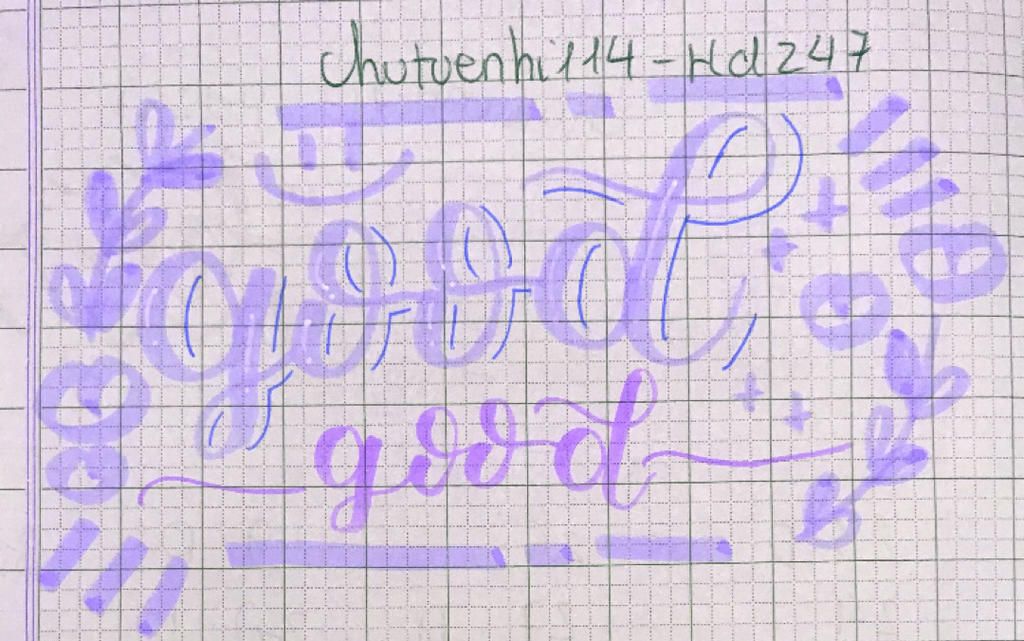 chutuenhi114-Hd247
good
good